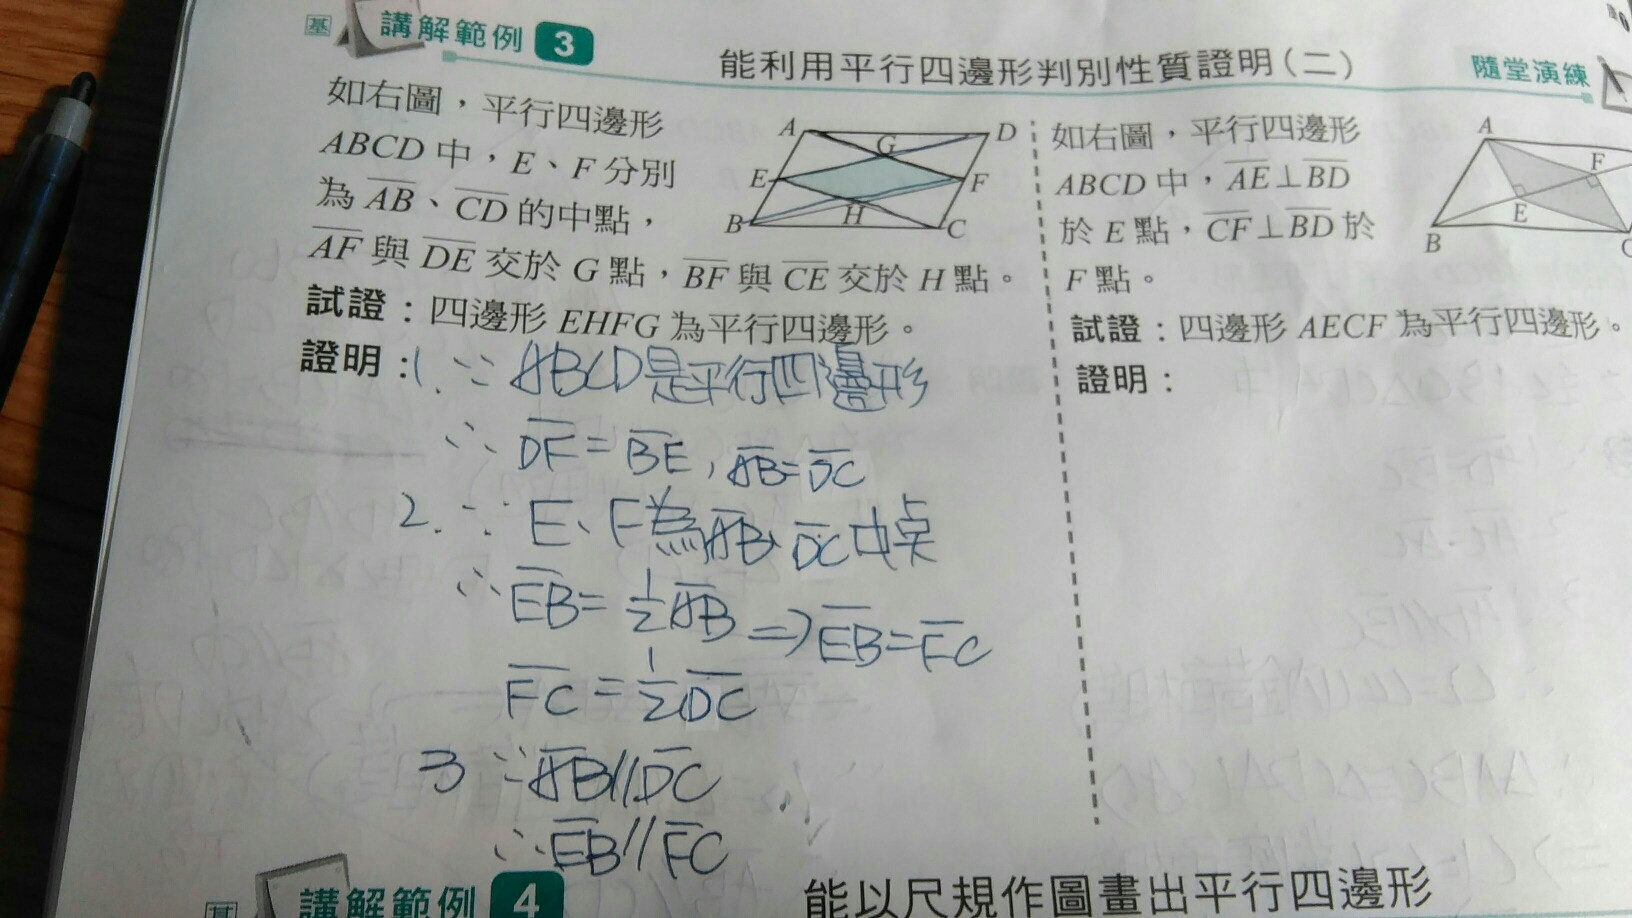 基 講解範例 3 能利用平行四邊形判別性質證明(二)
如右圖,平行四邊形
ABCD 中,E、F 分別
為 AB、CD 的中點,
AF 與 DE 交於 G 點,BF 與 CE 交於 H 點。
試證:四邊形 EHFG 為平行四邊形。
A
D
G
E
F
H
B
C
證明:1. ∵ ABCD是平行四邊形
∴ DF = BE, AB=DC
2. ∵ E、F為AB、DC中点
∴ EB = 1/2 AB ⇒ EB=FC
FC = 1/2 DC
3 ∵ AB//DC
∴ EB//FC
隨堂演練
如右圖,平行四邊形
ABCD 中,AE⊥BD
於 E 點,CF⊥BD 於
F 點。
試證:四邊形 AECF 為平行四邊形。
證明:
A
F
E
B
C
基 講解範例 4 能以尺規作圖畫出平行四邊形